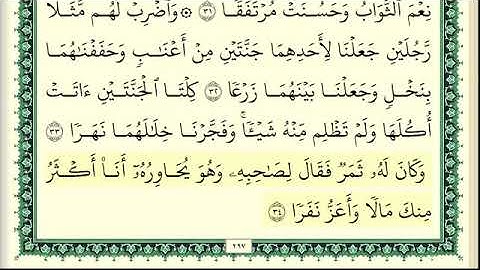 نِعْمَ ٱلثَّوَابُ وَحَسُنَتْ مُرْتَفَقًا ٣١ ۞ وَٱضْرِبْ لَهُم مَّثَلًا
رَّجُلَيْنِ جَعَلْنَا لِأَحَدِهِمَا جَنَّتَيْنِ مِنْ أَعْنَـٰبٍ وَحَفَفْنَـٰهُمَا
بِنَخْلٍ وَجَعَلْنَا بَيْنَهُمَا زَرْعًا ٣٢ كِلْتَا ٱلْجَنَّتَيْنِ ءَاتَتْ
أُكُلَهَا وَلَمْ تَظْلِم مِّنْهُ شَيْـًٔا ۚ وَفَجَّرْنَا خِلَـٰلَهُمَا نَهَرًا ٣٣
وَكَانَ لَهُۥ ثَمَرٌ فَقَالَ لِصَـٰحِبِهِۦ وَهُوَ يُحَاوِرُهُۥٓ أَنَا۠ أَكْثَرُ
مِنكَ مَالًا وَأَعَزُّ نَفَرًا ٣٤
٢٩٧